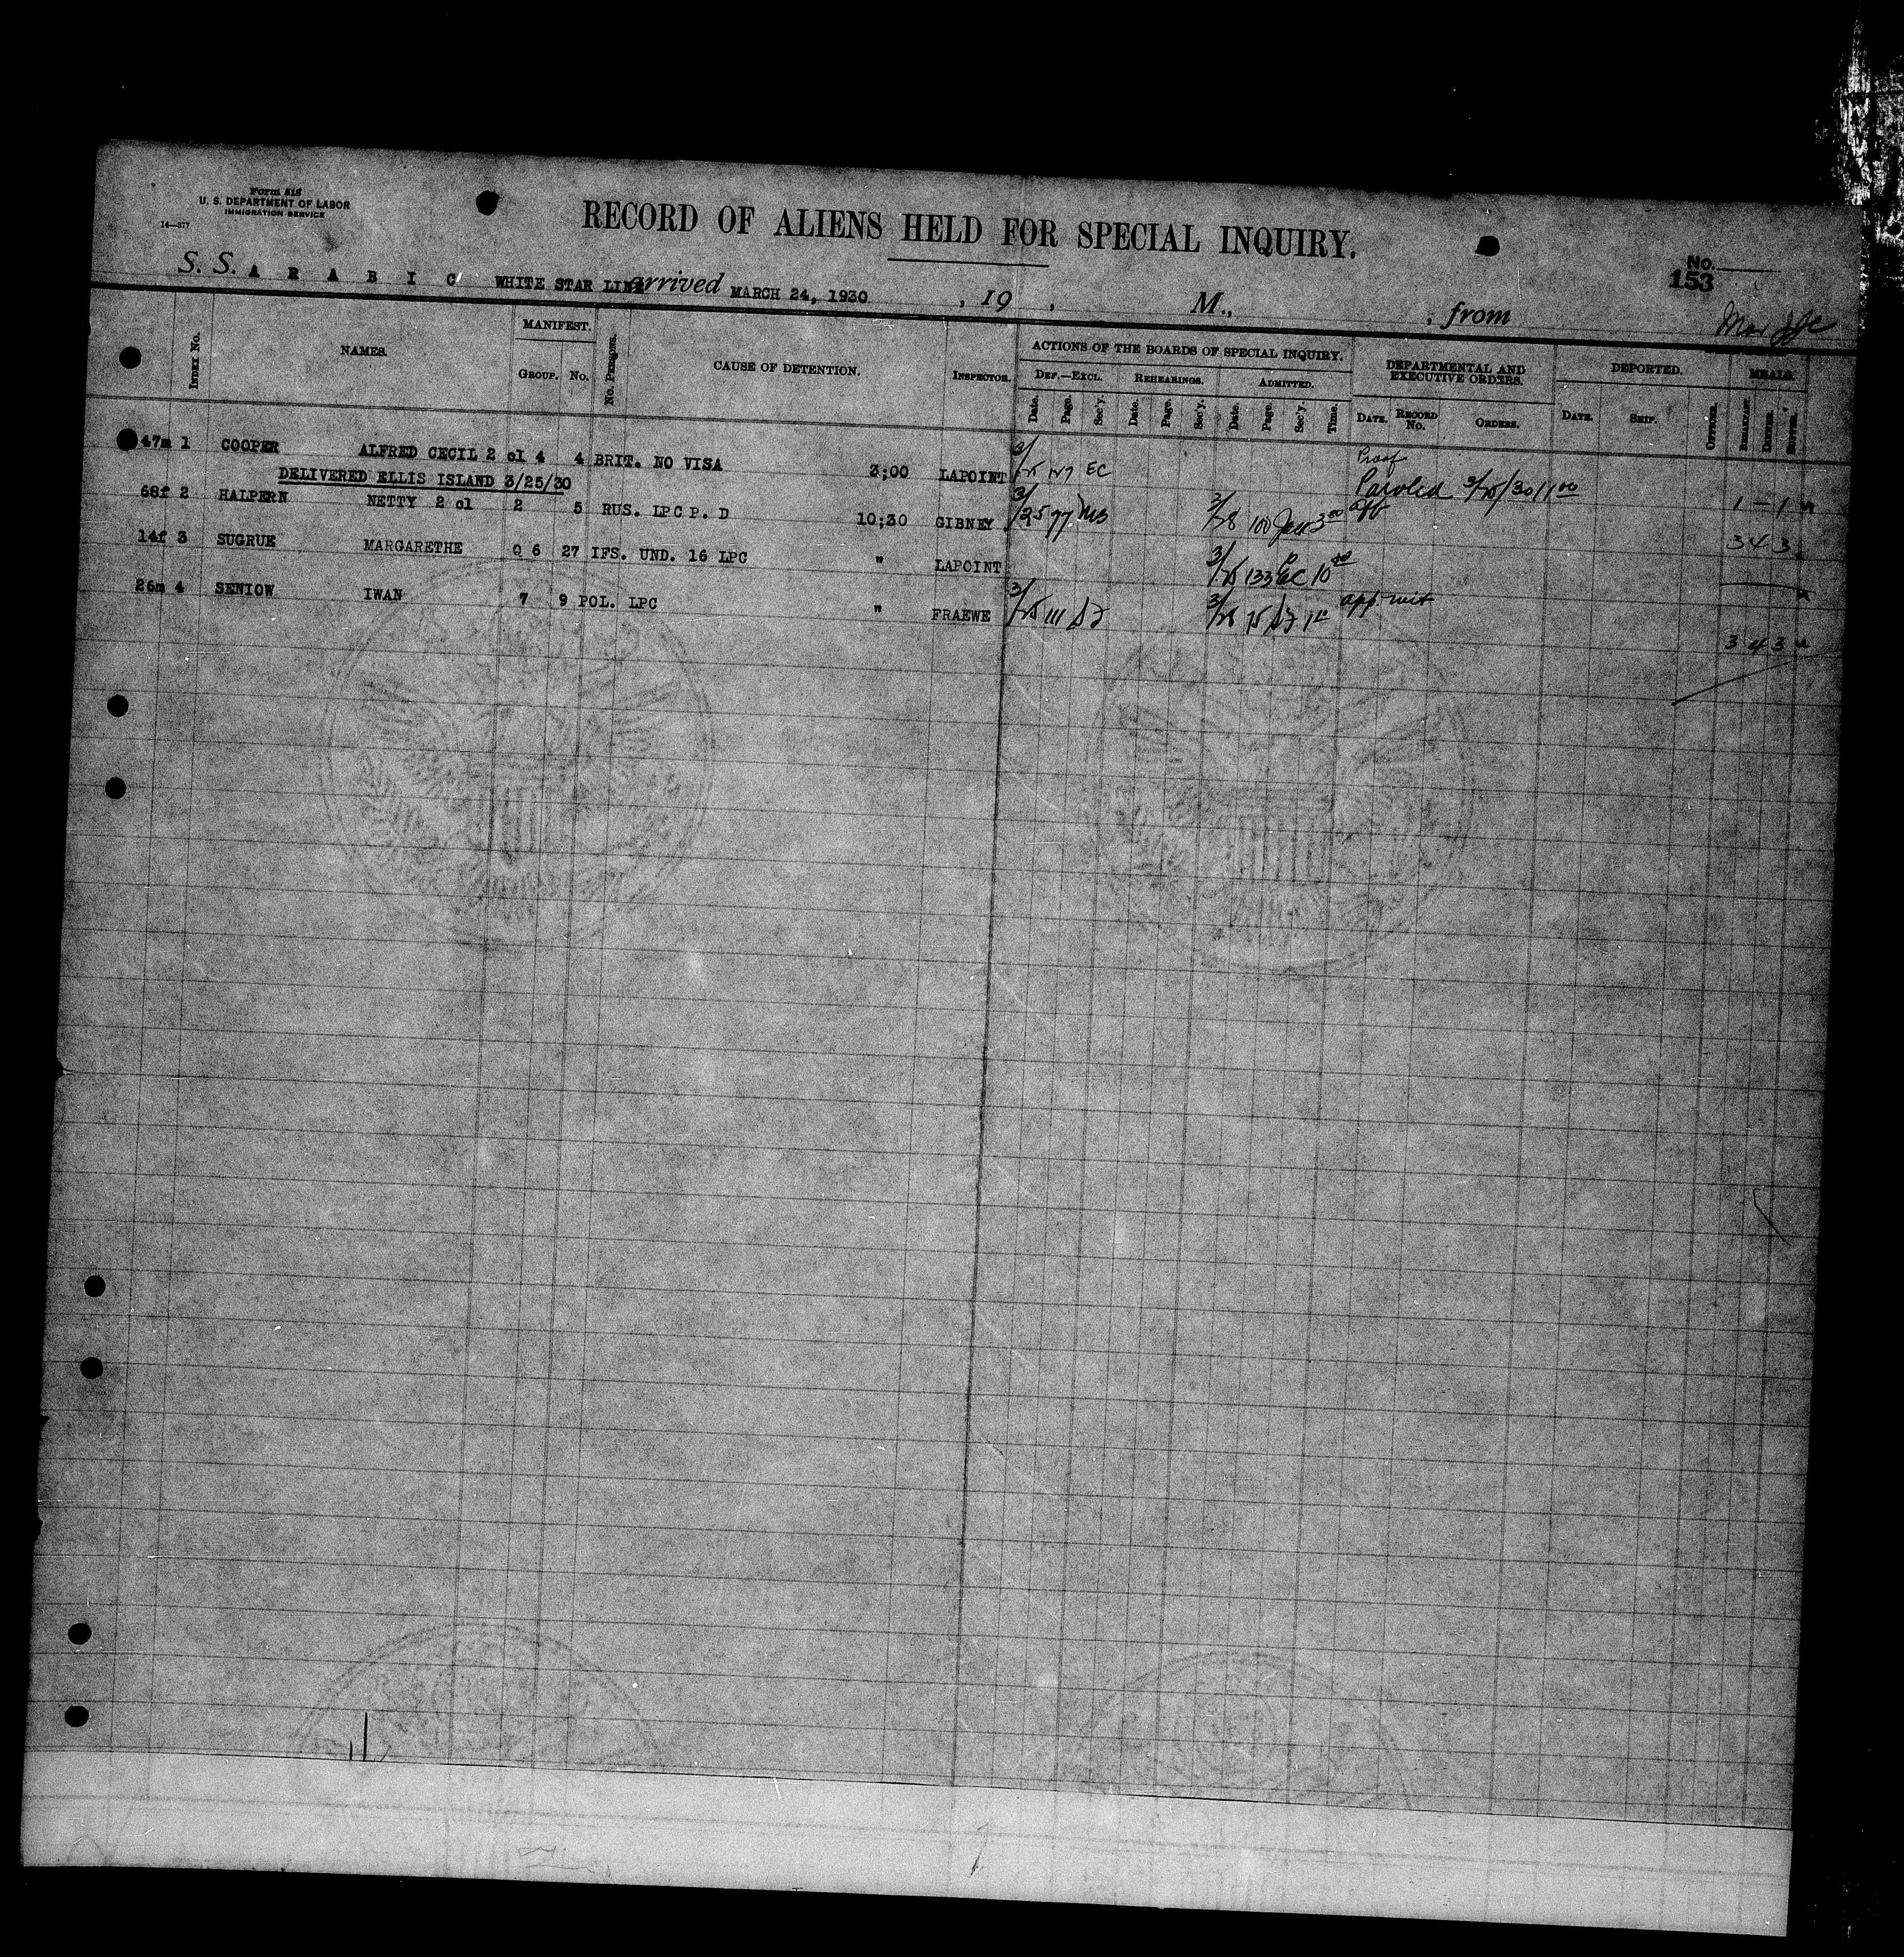 Form 518
U. S. DEPARTMENT OF LABOR
IMMIGRATION SERVICE
14—377
RECORD OF ALIENS HELD FOR SPECIAL INQUIRY.
No.
153
S. S. A R A B I C WHITE STAR LINE arrived MARCH 24, 1930 , 19 , M., , from
INDEX NO. NAMES. MANIFEST. GROUP. NO. NO. PERSONS. CAUSE OF DETENTION. INSPECTOR. ACTIONS OF THE BOARDS OF SPECIAL INQUIRY. DEPARTMENTAL AND EXECUTIVE ORDERS. DEPORTED. MEALS.
DEF.—EXCL. REHEARINGS. ADMITTED.
Date. Page. Sec'y. Date. Page. Sec'y. Date. Page. Sec'y. Time. DATE. RECORD NO. ORDERS. DATE. SHIP. OFFICER. BREAKFAST. DINNER. SUPPER.
47m 1 COOPER ALFRED CECIL 2 cl 4 4 BRIT. NO VISA 3;00 LAPOINT 3/25 127 EC Proof
DELIVERED ELLIS ISLAND 3/25/30 Paroled 3/25/30 11 00 1 – 1
68f 2 HALPERN NETTY 2 cl 2 5 RUS. LPC P. D 10;30 GIBNEY 3/25 77 MB 3/28 100 3 00 aff 3 4 3
14f 3 SUGRUE MARGARETHE 6 27 IFS. UND. 16 LPC " LAPOINT 3/25 133 EC 10
26m 4 SENIOW IWAN 7 9 POL. LPC " FRAEWE 3/25 111 3/28 75 app wit 3 4 3